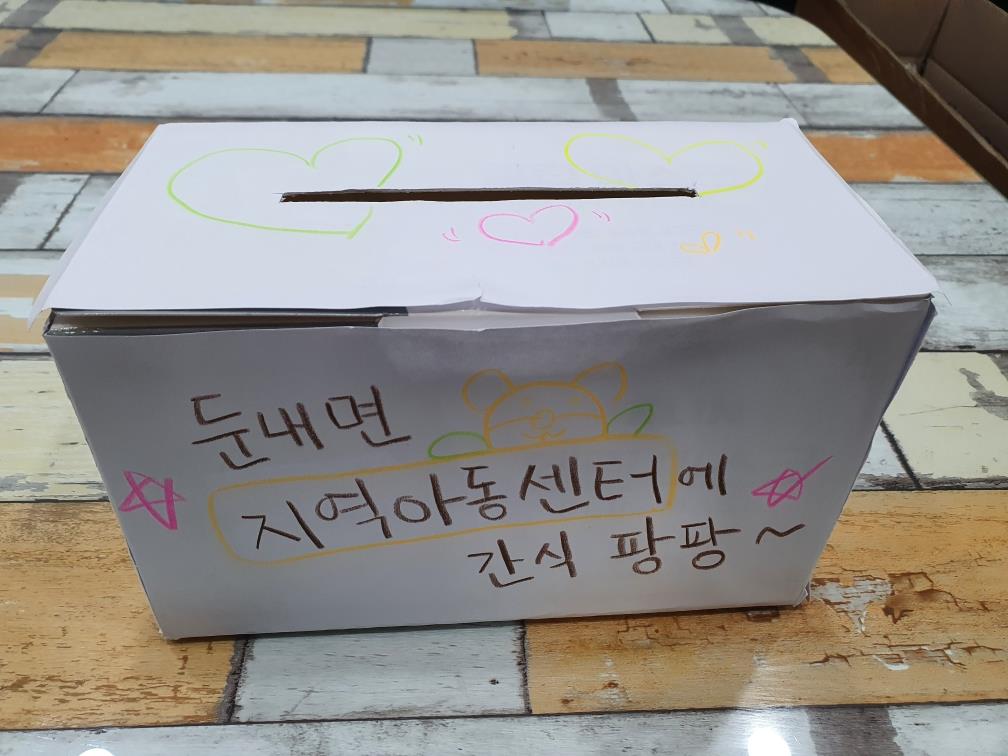 둔내면
지역아동센터에
간식 팡팡~